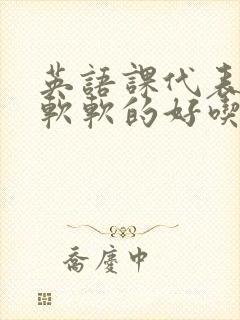 英語課代表
軟軟的好喫
喬慶中